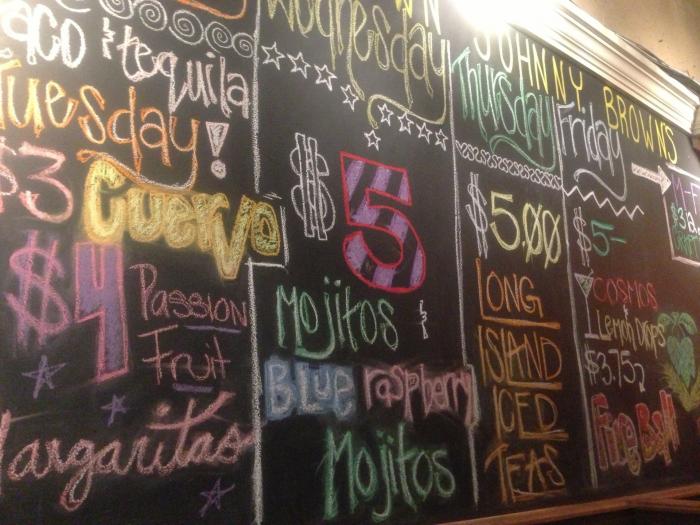 Taco & tequila
Tuesday!
$3 Cuervo
$4 Passion
Fruit
Margaritas
Wednesday
$5
Mojitos &
Blue raspberry
Mojitos
JOHNNY BROWNS
Thursday
$5.00
LONG
ISLAND
ICED
TEAS
Friday
$5-
COSMOS
&
Lemon Drops
$3.75
Fire Ball